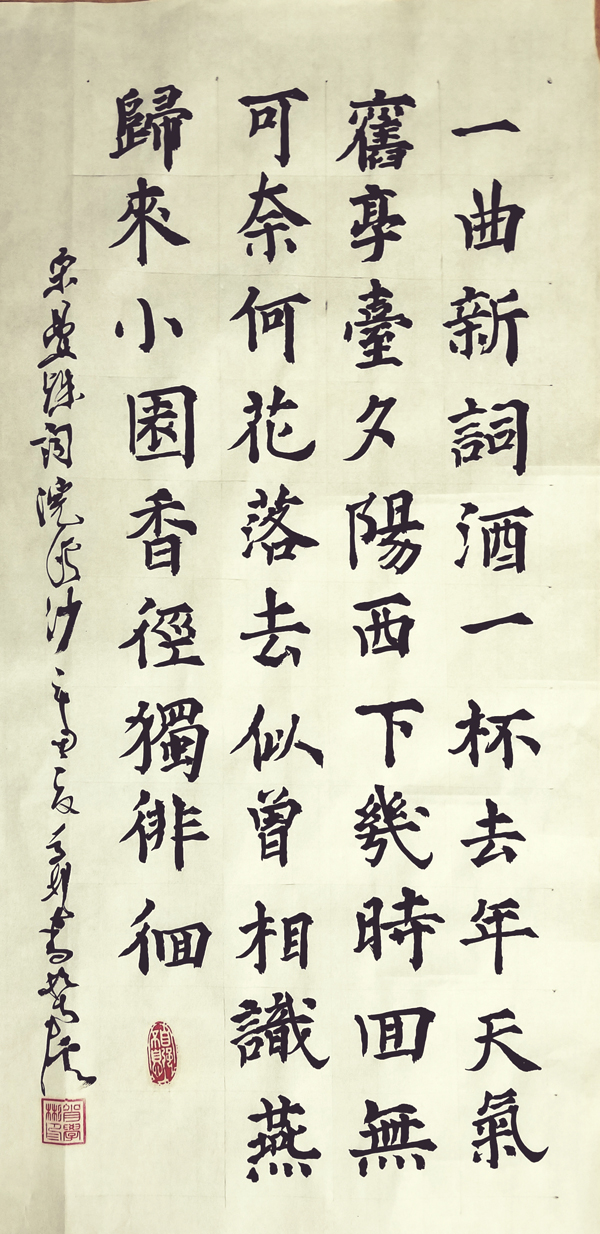 一曲新詞酒一杯去年天氣
舊亭臺夕陽西下幾時囬無
可奈何花落去似曾相識燕
歸來小園香徑獨徘徊
宋晏殊詞浣溪沙辛丑夏